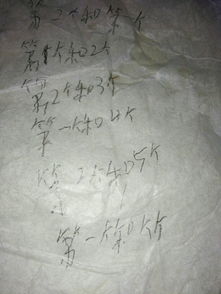 第2个和第一个
第1个和2个
第2个和3个
第一个和4个
第2个和5个
第一个和个